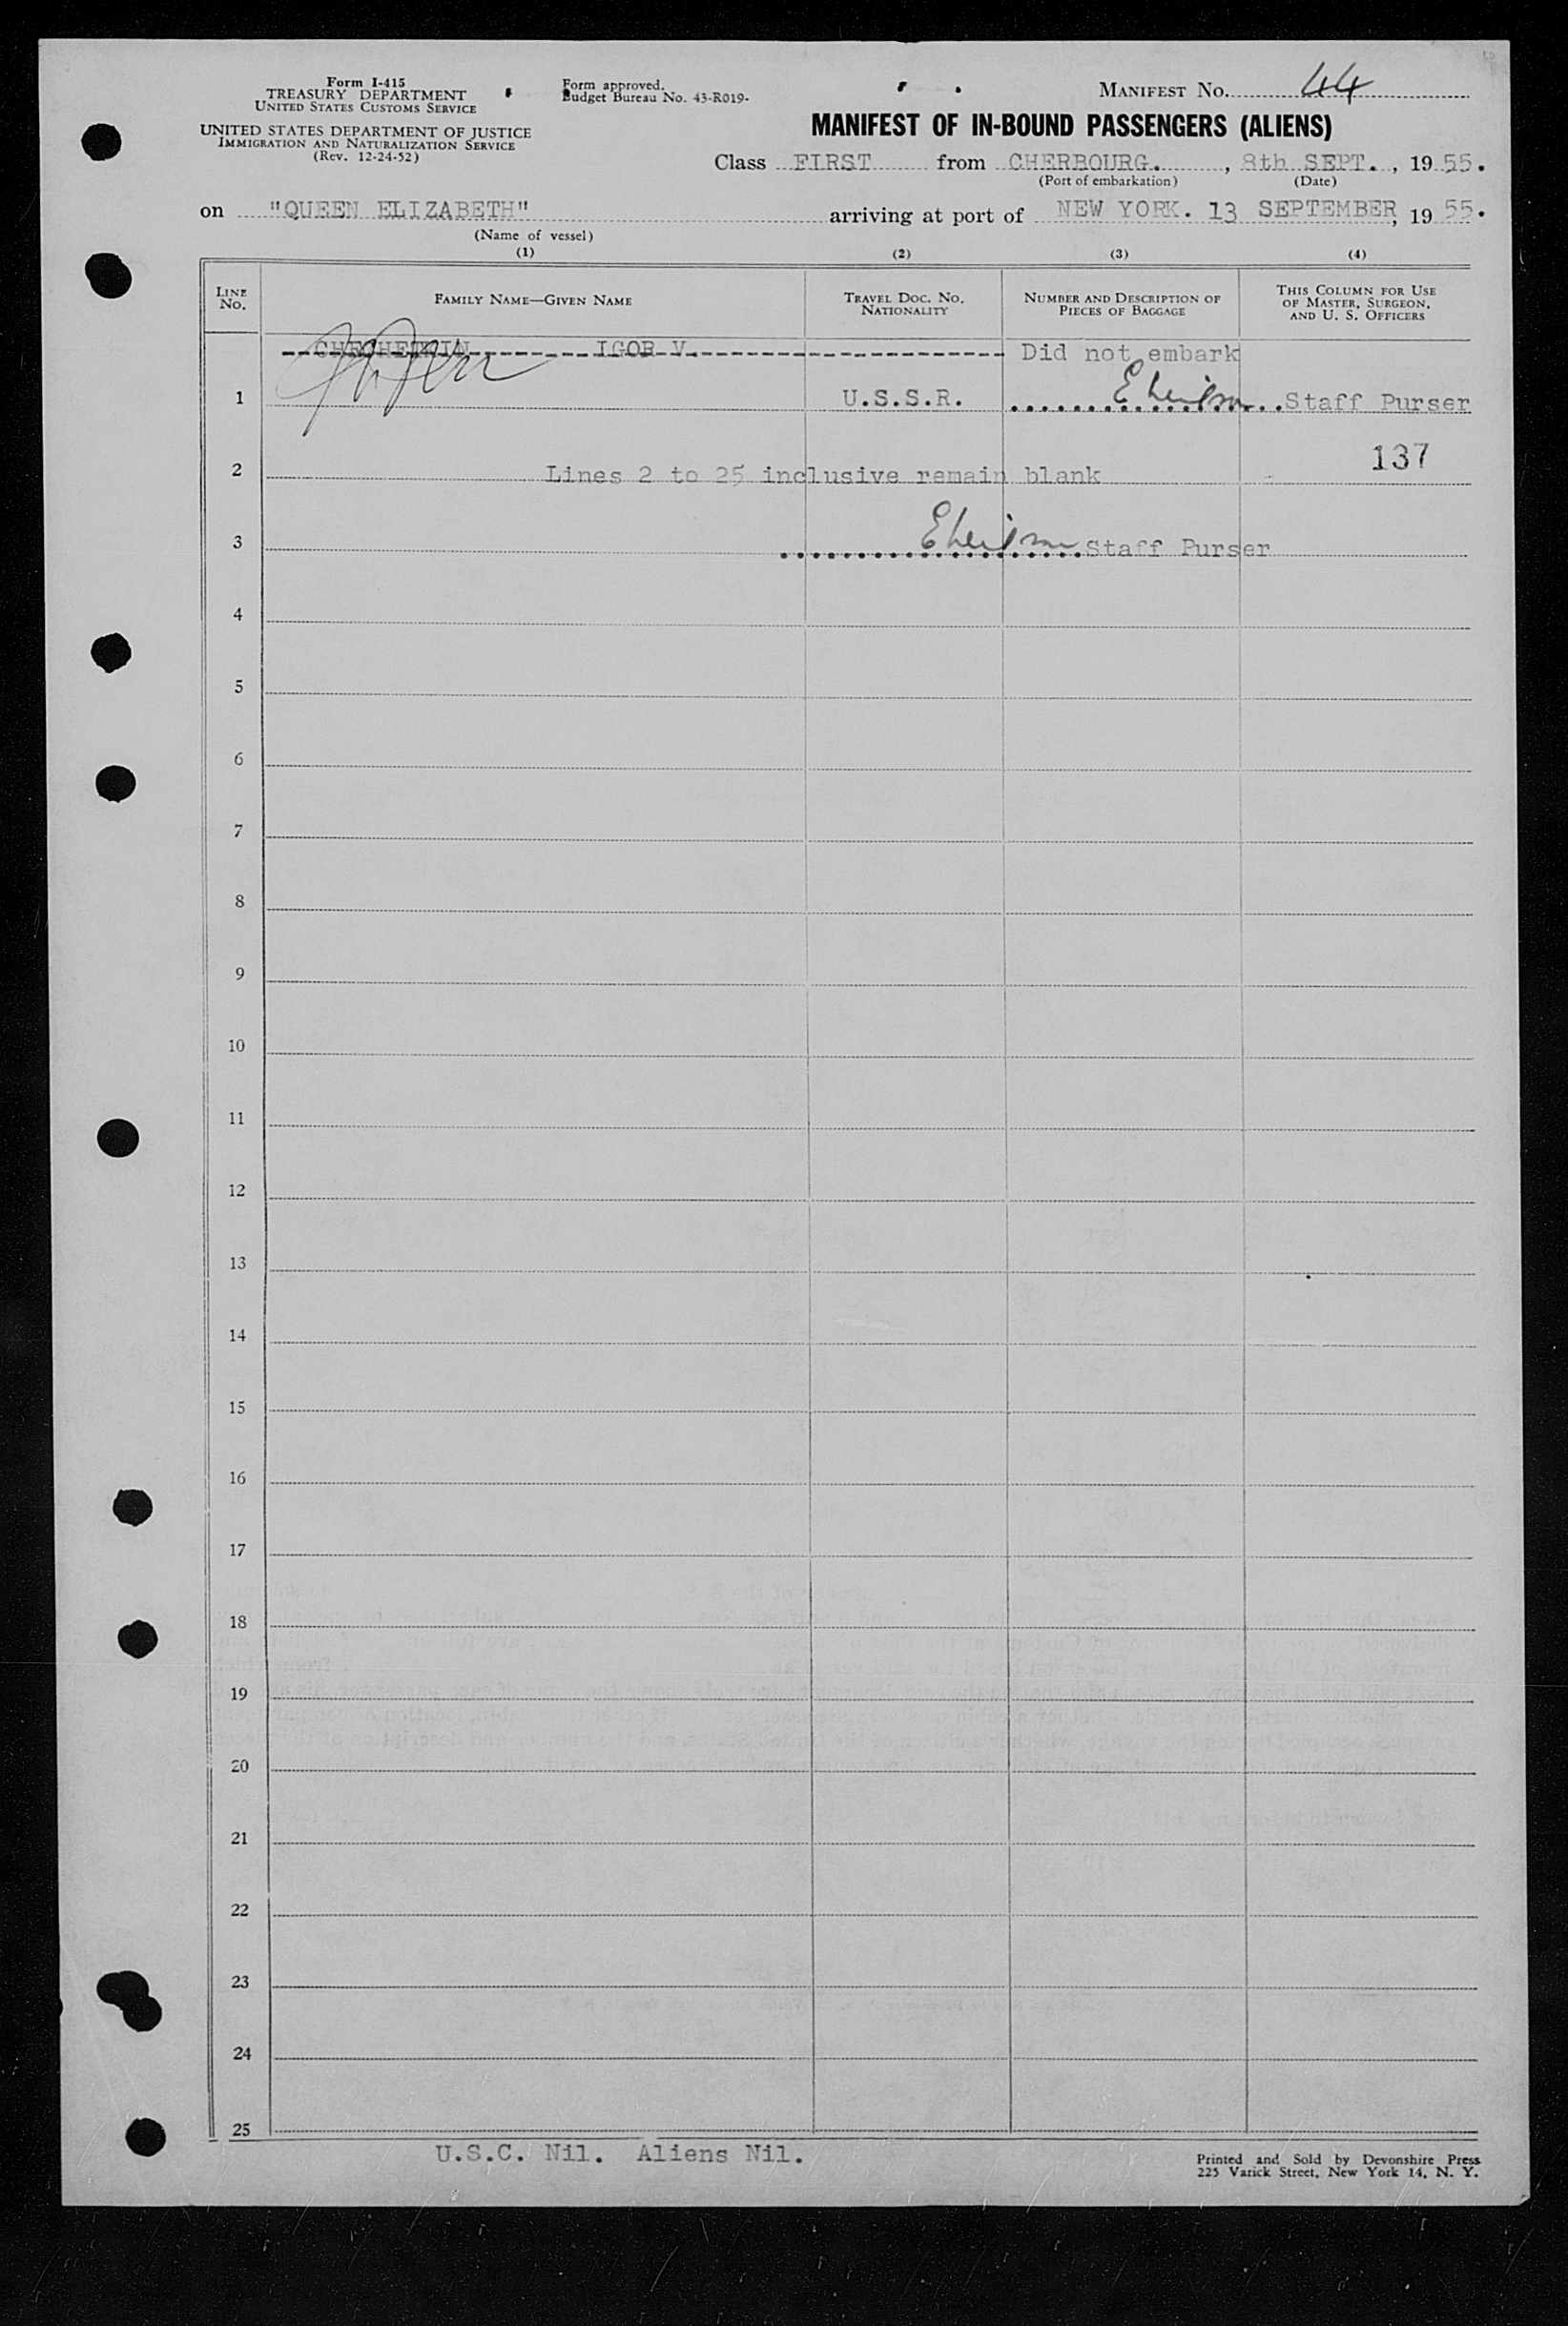 Form I-415
TREASURY DEPARTMENT
UNITED STATES CUSTOMS SERVICE
UNITED STATES DEPARTMENT OF JUSTICE
IMMIGRATION AND NATURALIZATION SERVICE
(Rev. 12-24-52)
Form approved.
Budget Bureau No. 43-R019-
MANIFEST No. 44
MANIFEST OF IN-BOUND PASSENGERS (ALIENS)
Class FIRST from CHERBOURG. , 8th SEPT. , 19 55.
(Port of embarkation) (Date)
on "QUEEN ELIZABETH" arriving at port of NEW YORK. 13 SEPTEMBER, 19 55.
(Name of vessel)
(1) (2) (3) (4)
LINE No. FAMILY NAME—GIVEN NAME TRAVEL DOC. NO. NATIONALITY NUMBER AND DESCRIPTION OF PIECES OF BAGGAGE THIS COLUMN FOR USE OF MASTER, SURGEON, AND U. S. OFFICERS
IGOR V. Did not embark
1 U.S.S.R. Staff Purser
2 Lines 2 to 25 inclusive remain blank 137
3 Staff Purser
4
5
6
7
8
9
10
11
12
13
14
15
16
17
18
19
20
21
22
23
24
25
U.S.C. Nil. Aliens Nil.
Printed and Sold by Devonshire Press
225 Varick Street, New York 14, N. Y.